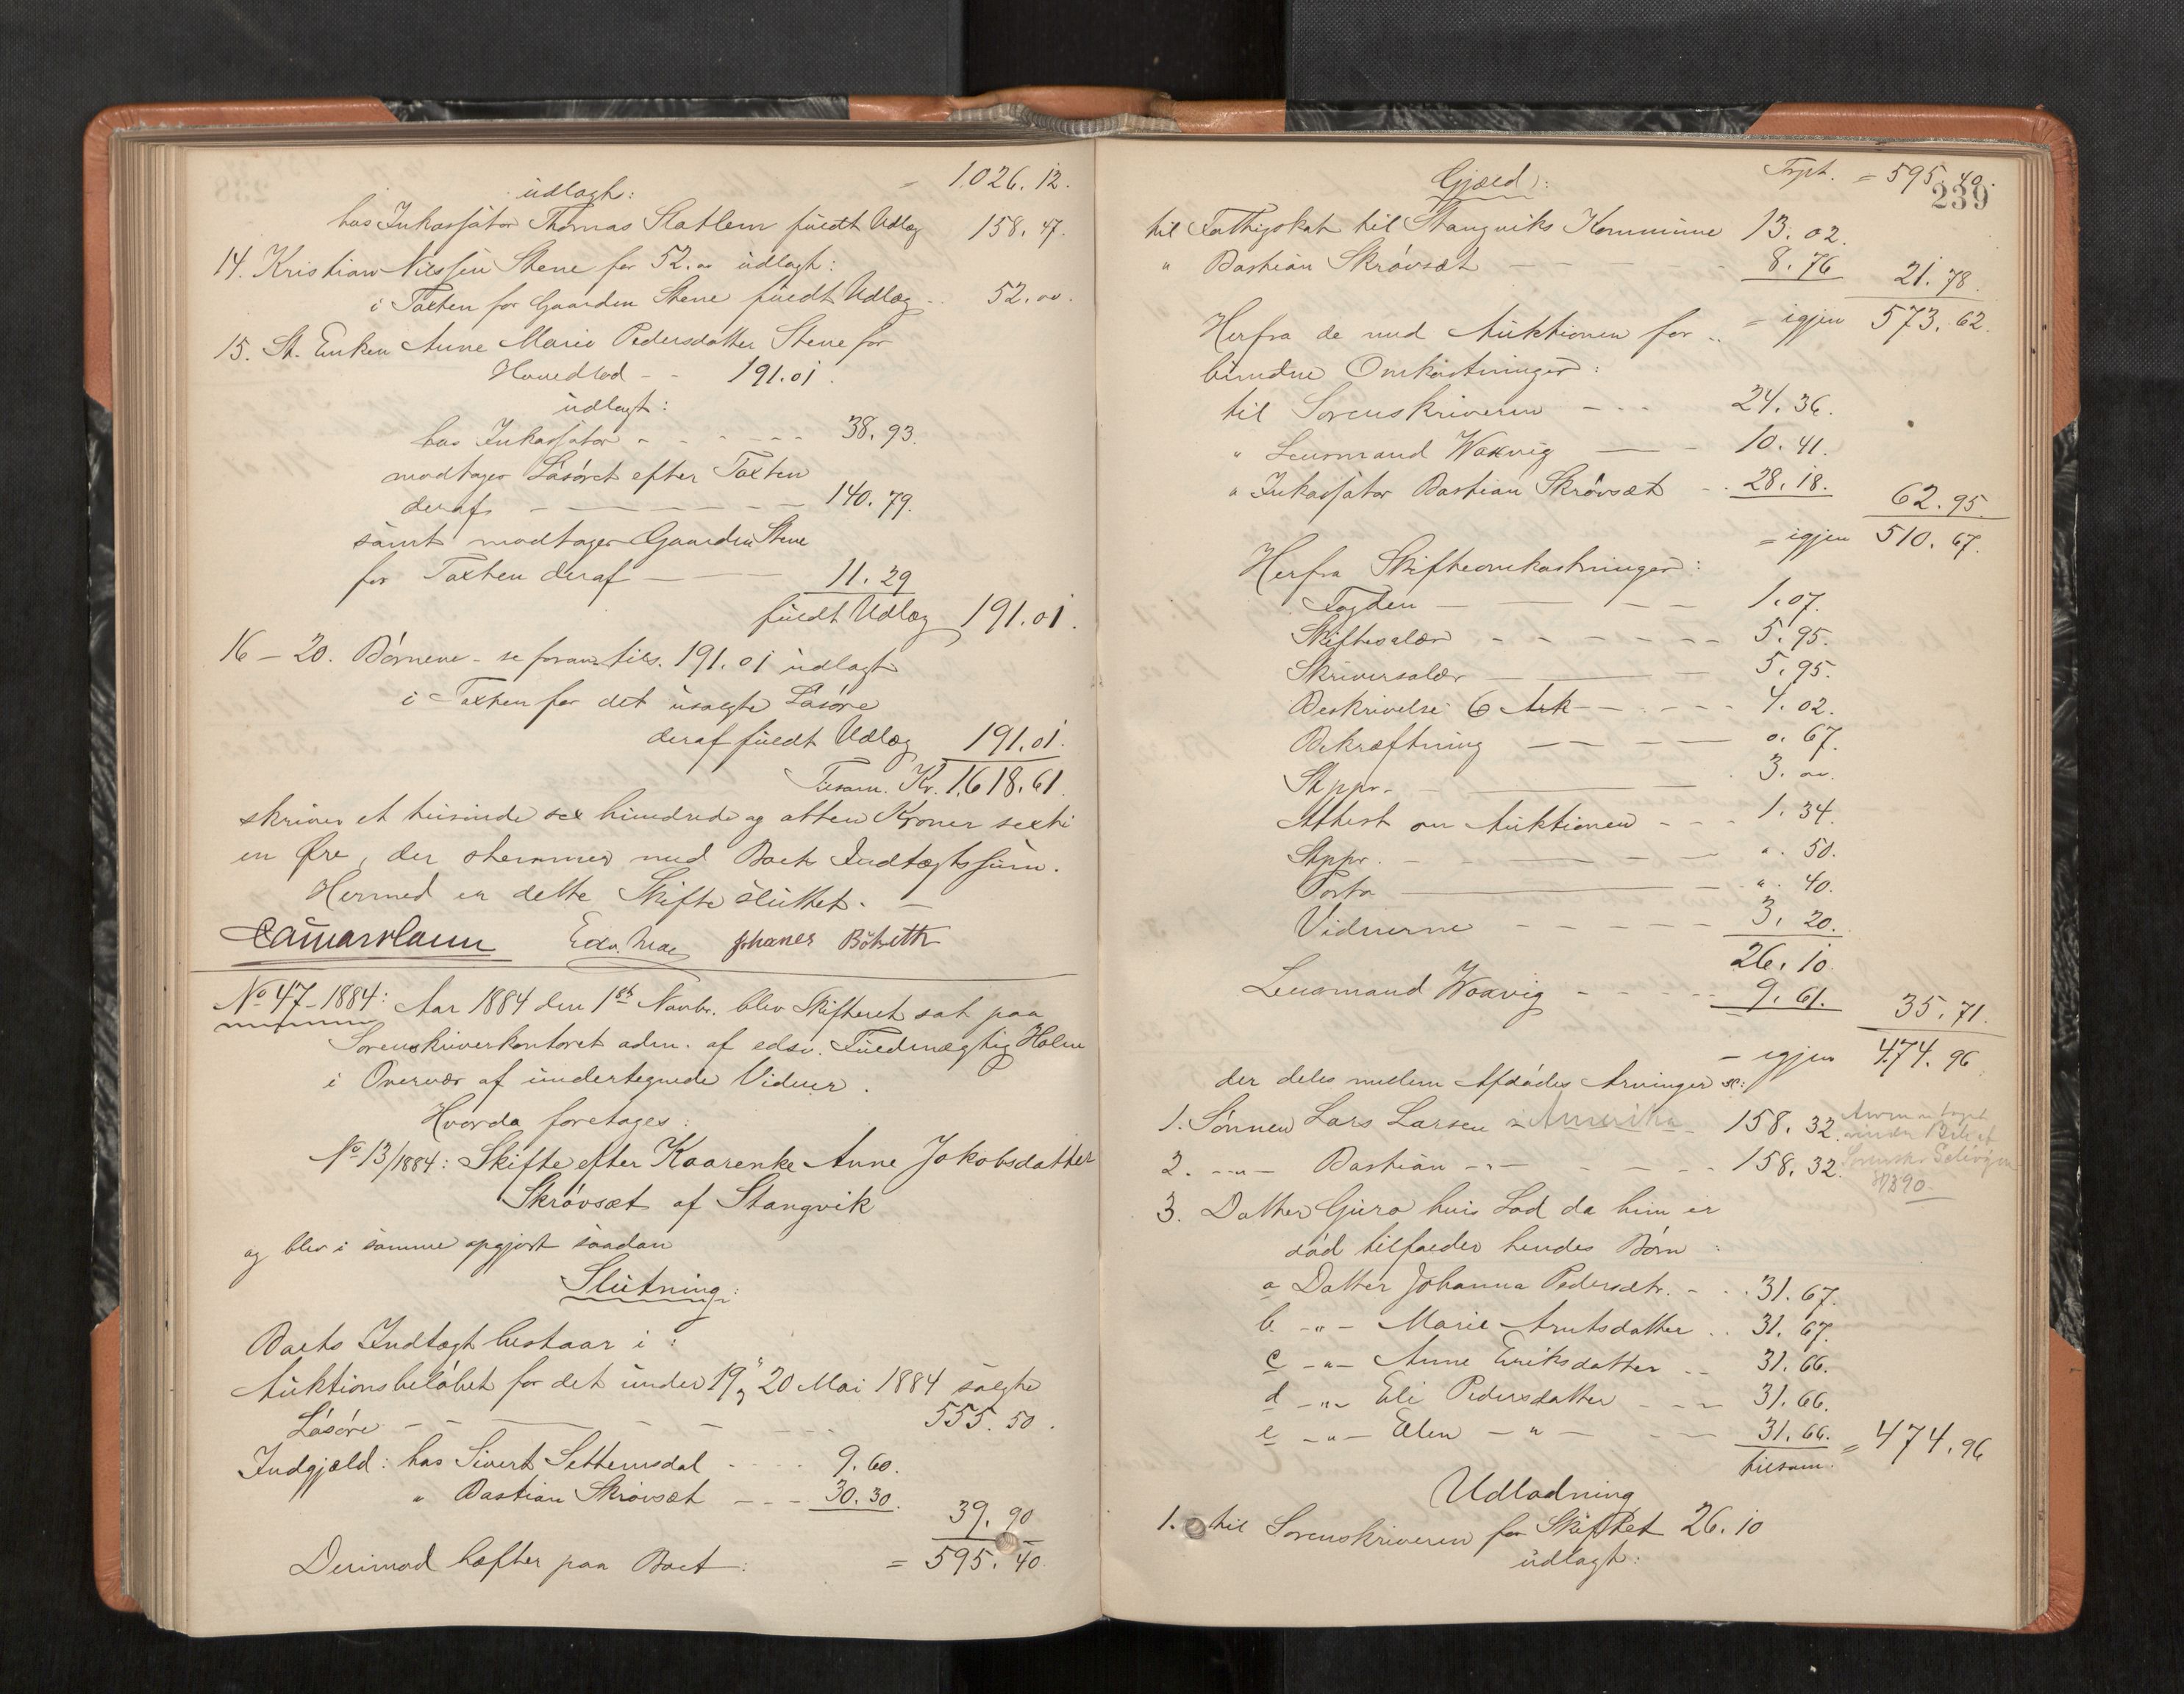 udlagt: = 1.026.12.
hos Inkassator Thomas Slatlem fuldt Udlæg 158.47.
14. Kristian Nilssen Stene for 52.00 udlagt:
i Taxten for Gaarden Stene fuldt Udlæg - 52.00.
15. St. Enken Anne Marie Pedersdatter Stene for
Hovedlod - - 191.01.
udlagt:
hos Inkassator - - - - - - 38.93.
modtager Løsøret efter Taxten
derafs - - - - - - 140.79.
samt modtager Gaarden Stene
for Taxten deraf - - - 11.29
fuldt Udlæg 191.01.
16 - 20. Børnene - se foran tils. 191.01 udlagt
i Taxten for det usolgte Løsøre
deraf fuldt Udlæg 191.01.
Tilsam. Kr. 1.618.61.
skriver et tusinde sex hundrede og atten Kroner sexti
en Øre, der stemmer med Boets Indtægtssum.
Hermed er dette Skifte sluttet. -
Johanes Bølseth
No 47-1884: Aar 1884 den 1ste Novbr. blev Skifteret sat paa
Sorenskriverkontoret adm. af edsv. Fuldmægtig Holm
i Overvær af undertegnede Vidner.
Hvorda foretoges:
No 13/1884: Skifte efter Kaarenke Anne Jokobsdatter
Skrøvset af Stangvik
og blev i samme opgjort saadan
Slutning:
Boets Indtægt bestaar i:
Auktionsbeløbet for det under 19 og 20 Mai 1884 solgte
Løsøre - - - - - - 555.50.
Indgjæld: hos Sivert Settemsdal - - - 9.60.
" Bastian Skrøvset - - - 30.30.
39.90
Derimod hefter paa Boet: = 595.40.
Gjæld: Trpt. = 595.40.
239
til Fattigskat til Stangviks Kommune 13.02.
" Bastian Skrøvset - - - 8.76 21.78.
Herfra de med Auktionen for - = igjen 573.62.
bundne Omkostninger:
til Sorenskriveren - - - 24.36.
" Lensmand Waxvig - - 10.41.
" Inkassator Bastian Skrøvset - 28.18. 62.95.
= igjen 510.67.
Herfra Skifteomkostninger:
Fogden - - - - 1.07.
Skiftesalær - - - - - - 5.95.
Skriversalær - - - 5.95.
Beskrivelse 6 Ark - - - - 4.02.
Bekræftning - - - - 0.67.
Stppr. - - - 3.00.
Attest om Auktionen - - - 1.34.
Stppr. - - - - ". 50.
Porto - - ". 40.
Vidnerne - - - - - 3.20.
26.10.
Lensmand Woxvig - - - - 9.61. 35.71.
- igjen 474.96
der deles mellem Afdødes Arvinger sc:
1. Sønnen Lars Larsen i Amerika - 158.32.
2. -"- Bastian -"- - - - - 158.32.
3. Datter Guro hvis Lod da hun er
død tilfalder hendes Børn:
a Datter Johanna Pedersdtr. - - 31.67.
b. -"- Marie Arntsdatter - - 31.67.
c -"- Anne Eriksdatter - - 31.66.
d -"- Eli Pedersdatter - - - 31.66.
e -"- Elen -"- - - 31.66. = 474.96
tilsam.
Udlodning
1. til Sorenskriveren for Skiftet 26.10
udlagt: